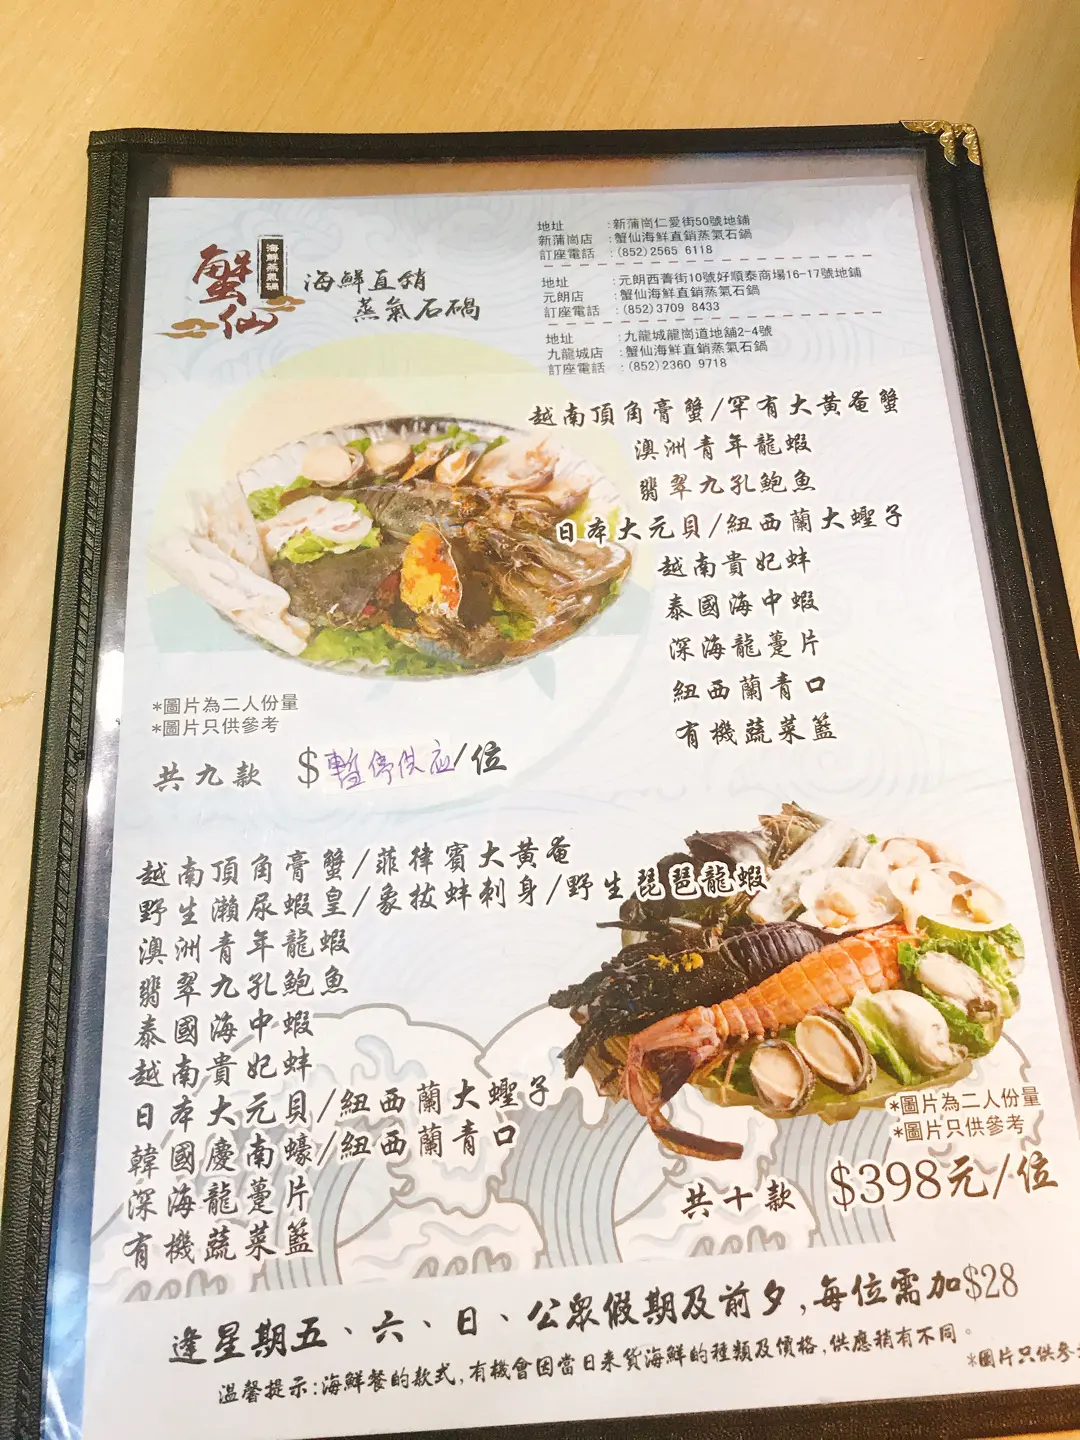 蟹仙
海鮮蒸氣鍋
海鮮直銷
蒸氣石鍋
地址 :新蒲崗仁愛街50號地鋪
新蒲崗店 :蟹仙海鮮直銷蒸氣石鍋
訂座電話 :(852)2565 6118
地址 :元朗西菁街10號好順泰商場16-17號地鋪
元朗店 :蟹仙海鮮直銷蒸氣石鍋
訂座電話 :(852)3709 8433
地址 :九龍城龍崗道地舖2-4號
九龍城店 :蟹仙海鮮直銷蒸氣石鍋
訂座電話 :(852)2360 9718
越南頂角膏蟹/罕有大黃奄蟹
澳洲青年龍蝦
翡翠九孔鮑魚
日本大元貝/紐西蘭大蟶子
越南貴妃蚌
泰國海中蝦
深海龍躉片
紐西蘭青口
有機蔬菜籃
*圖片為二人份量
*圖片只供參考
共九款 $暫停供应/位
越南頂角膏蟹/菲律賓大黃奄
野生瀨尿蝦皇/象拔蚌刺身/野生琵琶龍蝦
澳洲青年龍蝦
翡翠九孔鮑魚
泰國海中蝦
越南貴妃蚌
日本大元貝/紐西蘭大蟶子
韓國慶南蠔/紐西蘭青口
深海龍躉片
有機蔬菜籃
*圖片為二人份量
*圖片只供參考
共十款 $398元/位
逢星期五、六、日、公眾假期及前夕,每位需加$28
溫馨提示:海鮮餐的款式,有機會因當日來貨海鮮的種類及價格,供應稍有不同。
*圖片只供參